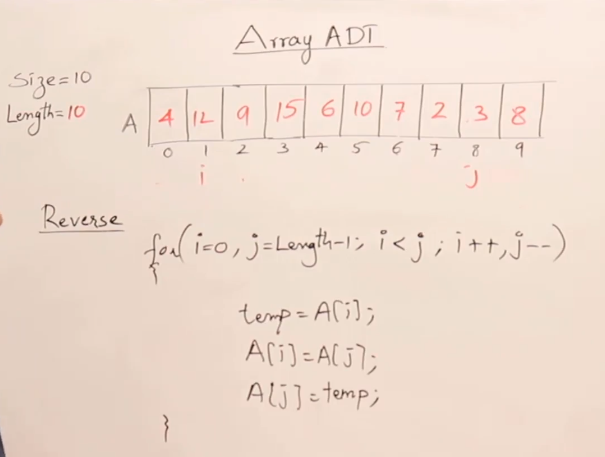 Array ADT
Size=10
Length=10
A 4 12 9 15 6 10 7 2 3 8
0 1 2 3 4 5 6 7 8 9
i j
Reverse
for(i=0, j=Length-1; i<j; i++, j--)
{
temp=A[i];
A[i]=A[j];
A[j]=temp;
}